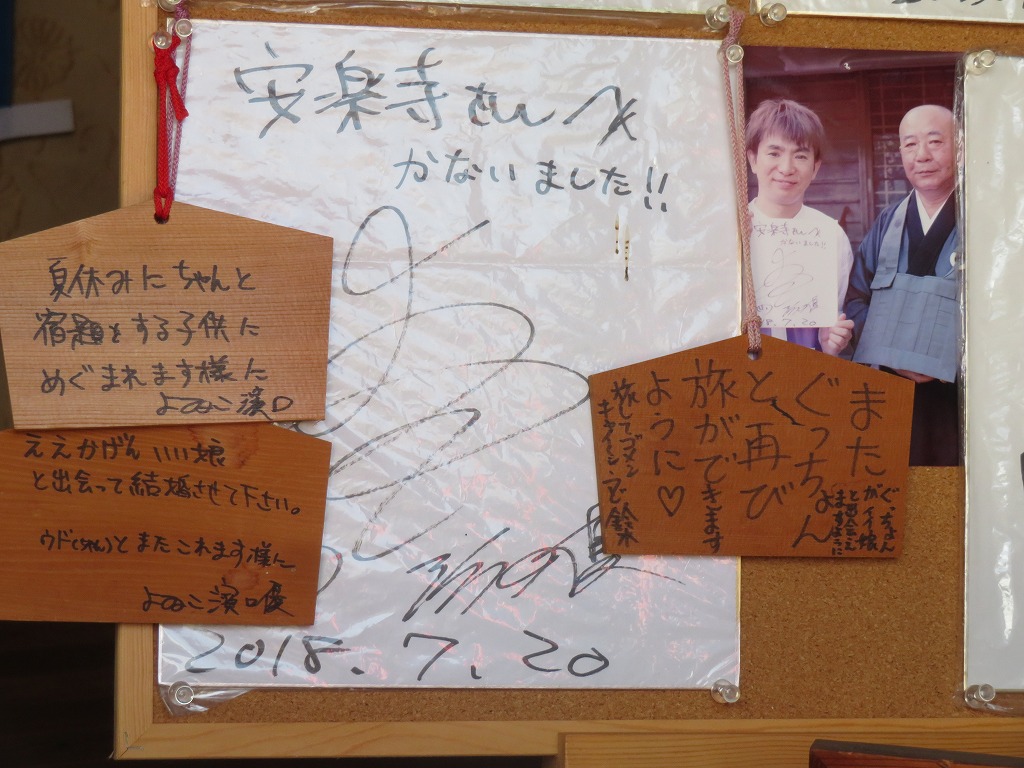 安楽寺さんへ
かないました!!
2018.7.20
夏休みにちゃんと
宿題をする子供に
めぐまれます様に
よゐこ濱口
ええかげんいい娘
と出会って結婚させて下さい。
ウド(ちゃん)とまたこれます様に
よゐこ濱口優
また
ぐっちょん
と再び
旅ができます
ように♡
ぐっちょん
がイイ娘
と出会え
ますように
旅してゴメン
キャイ〜ン ウド鈴木
安楽寺さんへ
かないました!!
2018.7.20